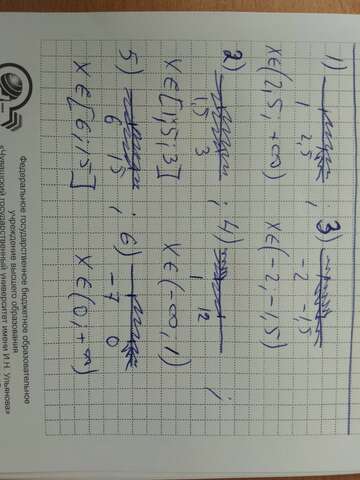 1) ; 3)
1 2,5 -2 -1,5
x∈(2,5;+∞) x∈(-2;-1,5)
2) ; 4) ;
1,5 3 1 12
x∈[1,5;3] x∈(-∞;1)
5) ; 6)
6 15 -7 0
x∈[6;15] x∈(0;+∞)
Федеральное государственное бюджетное образовательное
учреждение высшего образования
«Чувашский государственный университет имени И.Н. Ульянова»